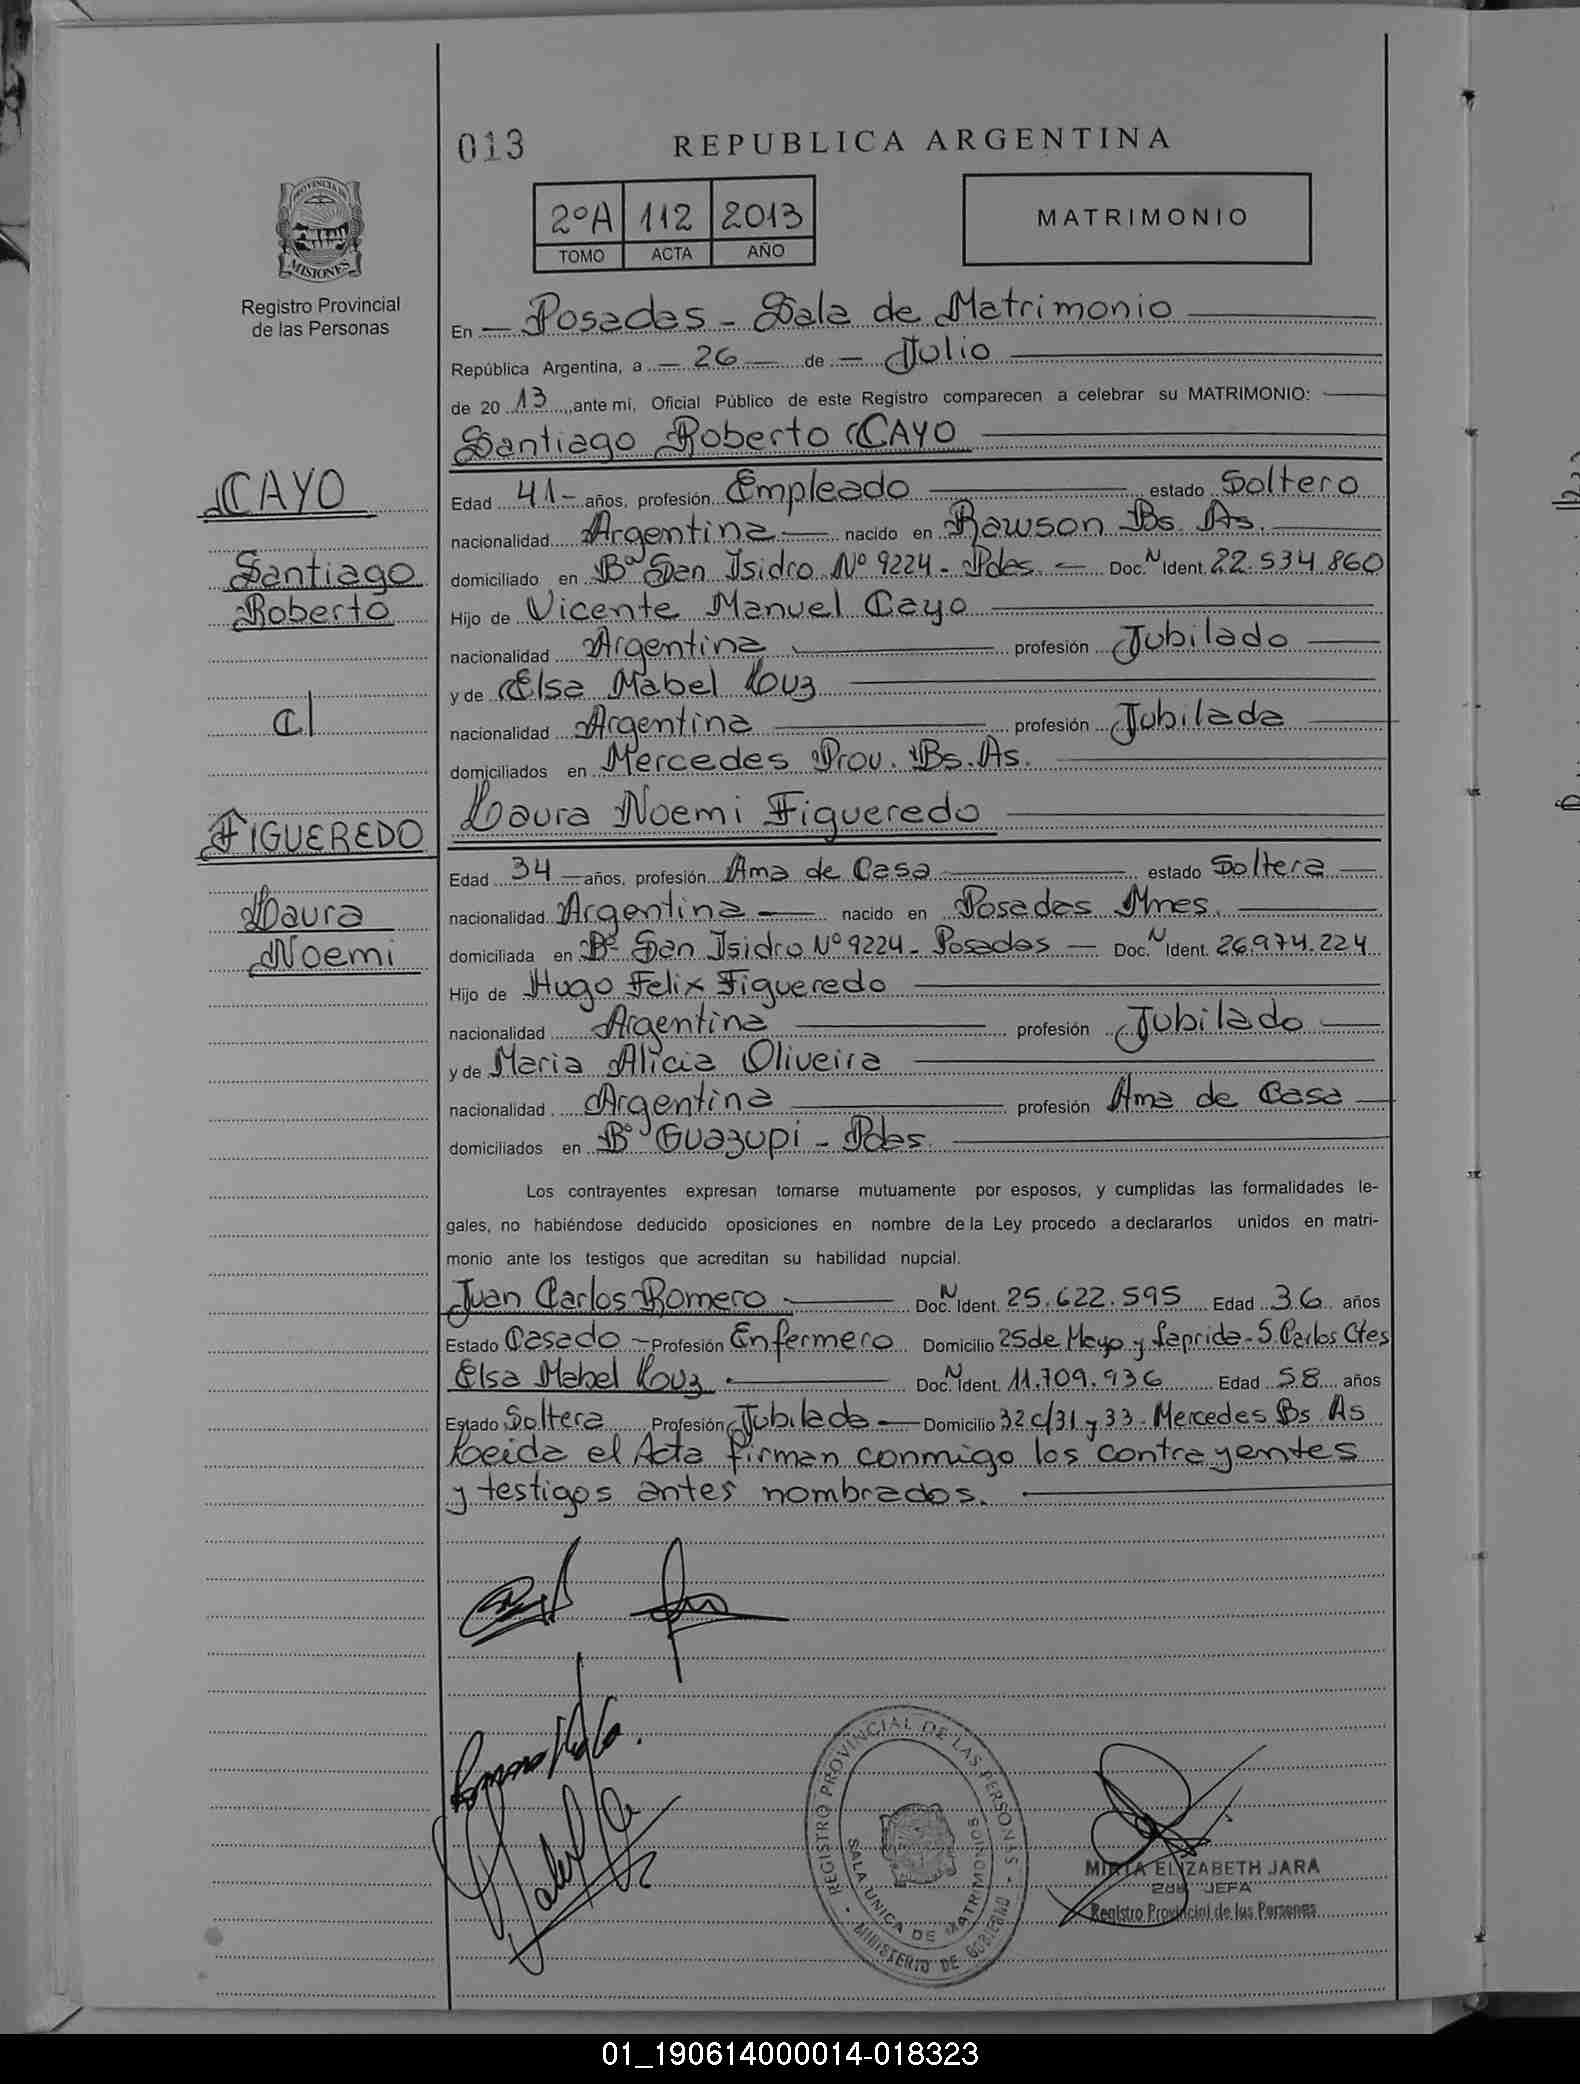 013
REPUBLICA ARGENTINA
2ºA 112 2013
TOMO ACTA AÑO
MATRIMONIO
PROVINCIA DE
MISIONES
Registro Provincial
de las Personas
En Posadas - Sala de Matrimonio
República Argentina, a 26 de Julio
de 20 13 ante mi, Oficial Público de este Registro comparecen a celebrar su MATRIMONIO:
Santiago Roberto CAYO
CAYO
Santiago
Roberto
c/
FIGUEREDO
Laura
Noemi
Edad 41- años, profesión Empleado estado Soltero
nacionalidad Argentina nacido en Rawson Bs. As.
domiciliado en Bº San Isidro Nº 9224 - Pdas. Doc. N Ident. 22.534.860
Hijo de Vicente Manuel Cayo
nacionalidad Argentina profesión Jubilado
y de Elsa Mabel Luz
nacionalidad Argentina profesión Jubilada
domiciliados en Mercedes Prov. Bs. As.
Laura Noemi Figueredo
Edad 34 años, profesión Ama de Casa estado Soltera
nacionalidad Argentina nacido en Posadas Mnes.
domiciliada en Bº San Isidro Nº 9224 - Posadas Doc. N Ident. 26.974.224
Hijo de Hugo Felix Figueredo
nacionalidad Argentina profesión Jubilado
y de Maria Alicia Oliveira
nacionalidad Argentina profesión Ama de Casa
domiciliados en Bº Guazupi - Pdas.
Los contrayentes expresan tomarse mutuamente por esposos, y cumplidas las formalidades le-
gales, no habiéndose deducido oposiciones en nombre de la Ley procedo a declararlos unidos en matri-
monio ante los testigos que acreditan su habilidad nupcial.
Juan Carlos Romero Doc. N Ident. 25.622.595 Edad 36 años
Estado Casado Profesión Enfermero Domicilio 25 de Mayo y Laprida - S. Carlos Ctes
Elsa Mabel Luz Doc. N Ident. 11.709.936 Edad 58 años
Estado Soltera Profesión Jubilada Domicilio 32 c/31 y 33 - Mercedes Bs As
Leida el Acta firman conmigo los contrayentes
y testigos antes nombrados.
REGISTRO PROVINCIAL DE LAS PERSONAS
SALA UNICA DE MATRIMONIOS
MINISTERIO DE GOBIERNO
MIRTA ELIZABETH JARA
2da JEFA
Registro Provincial de las Personas
01_190614000014-018323